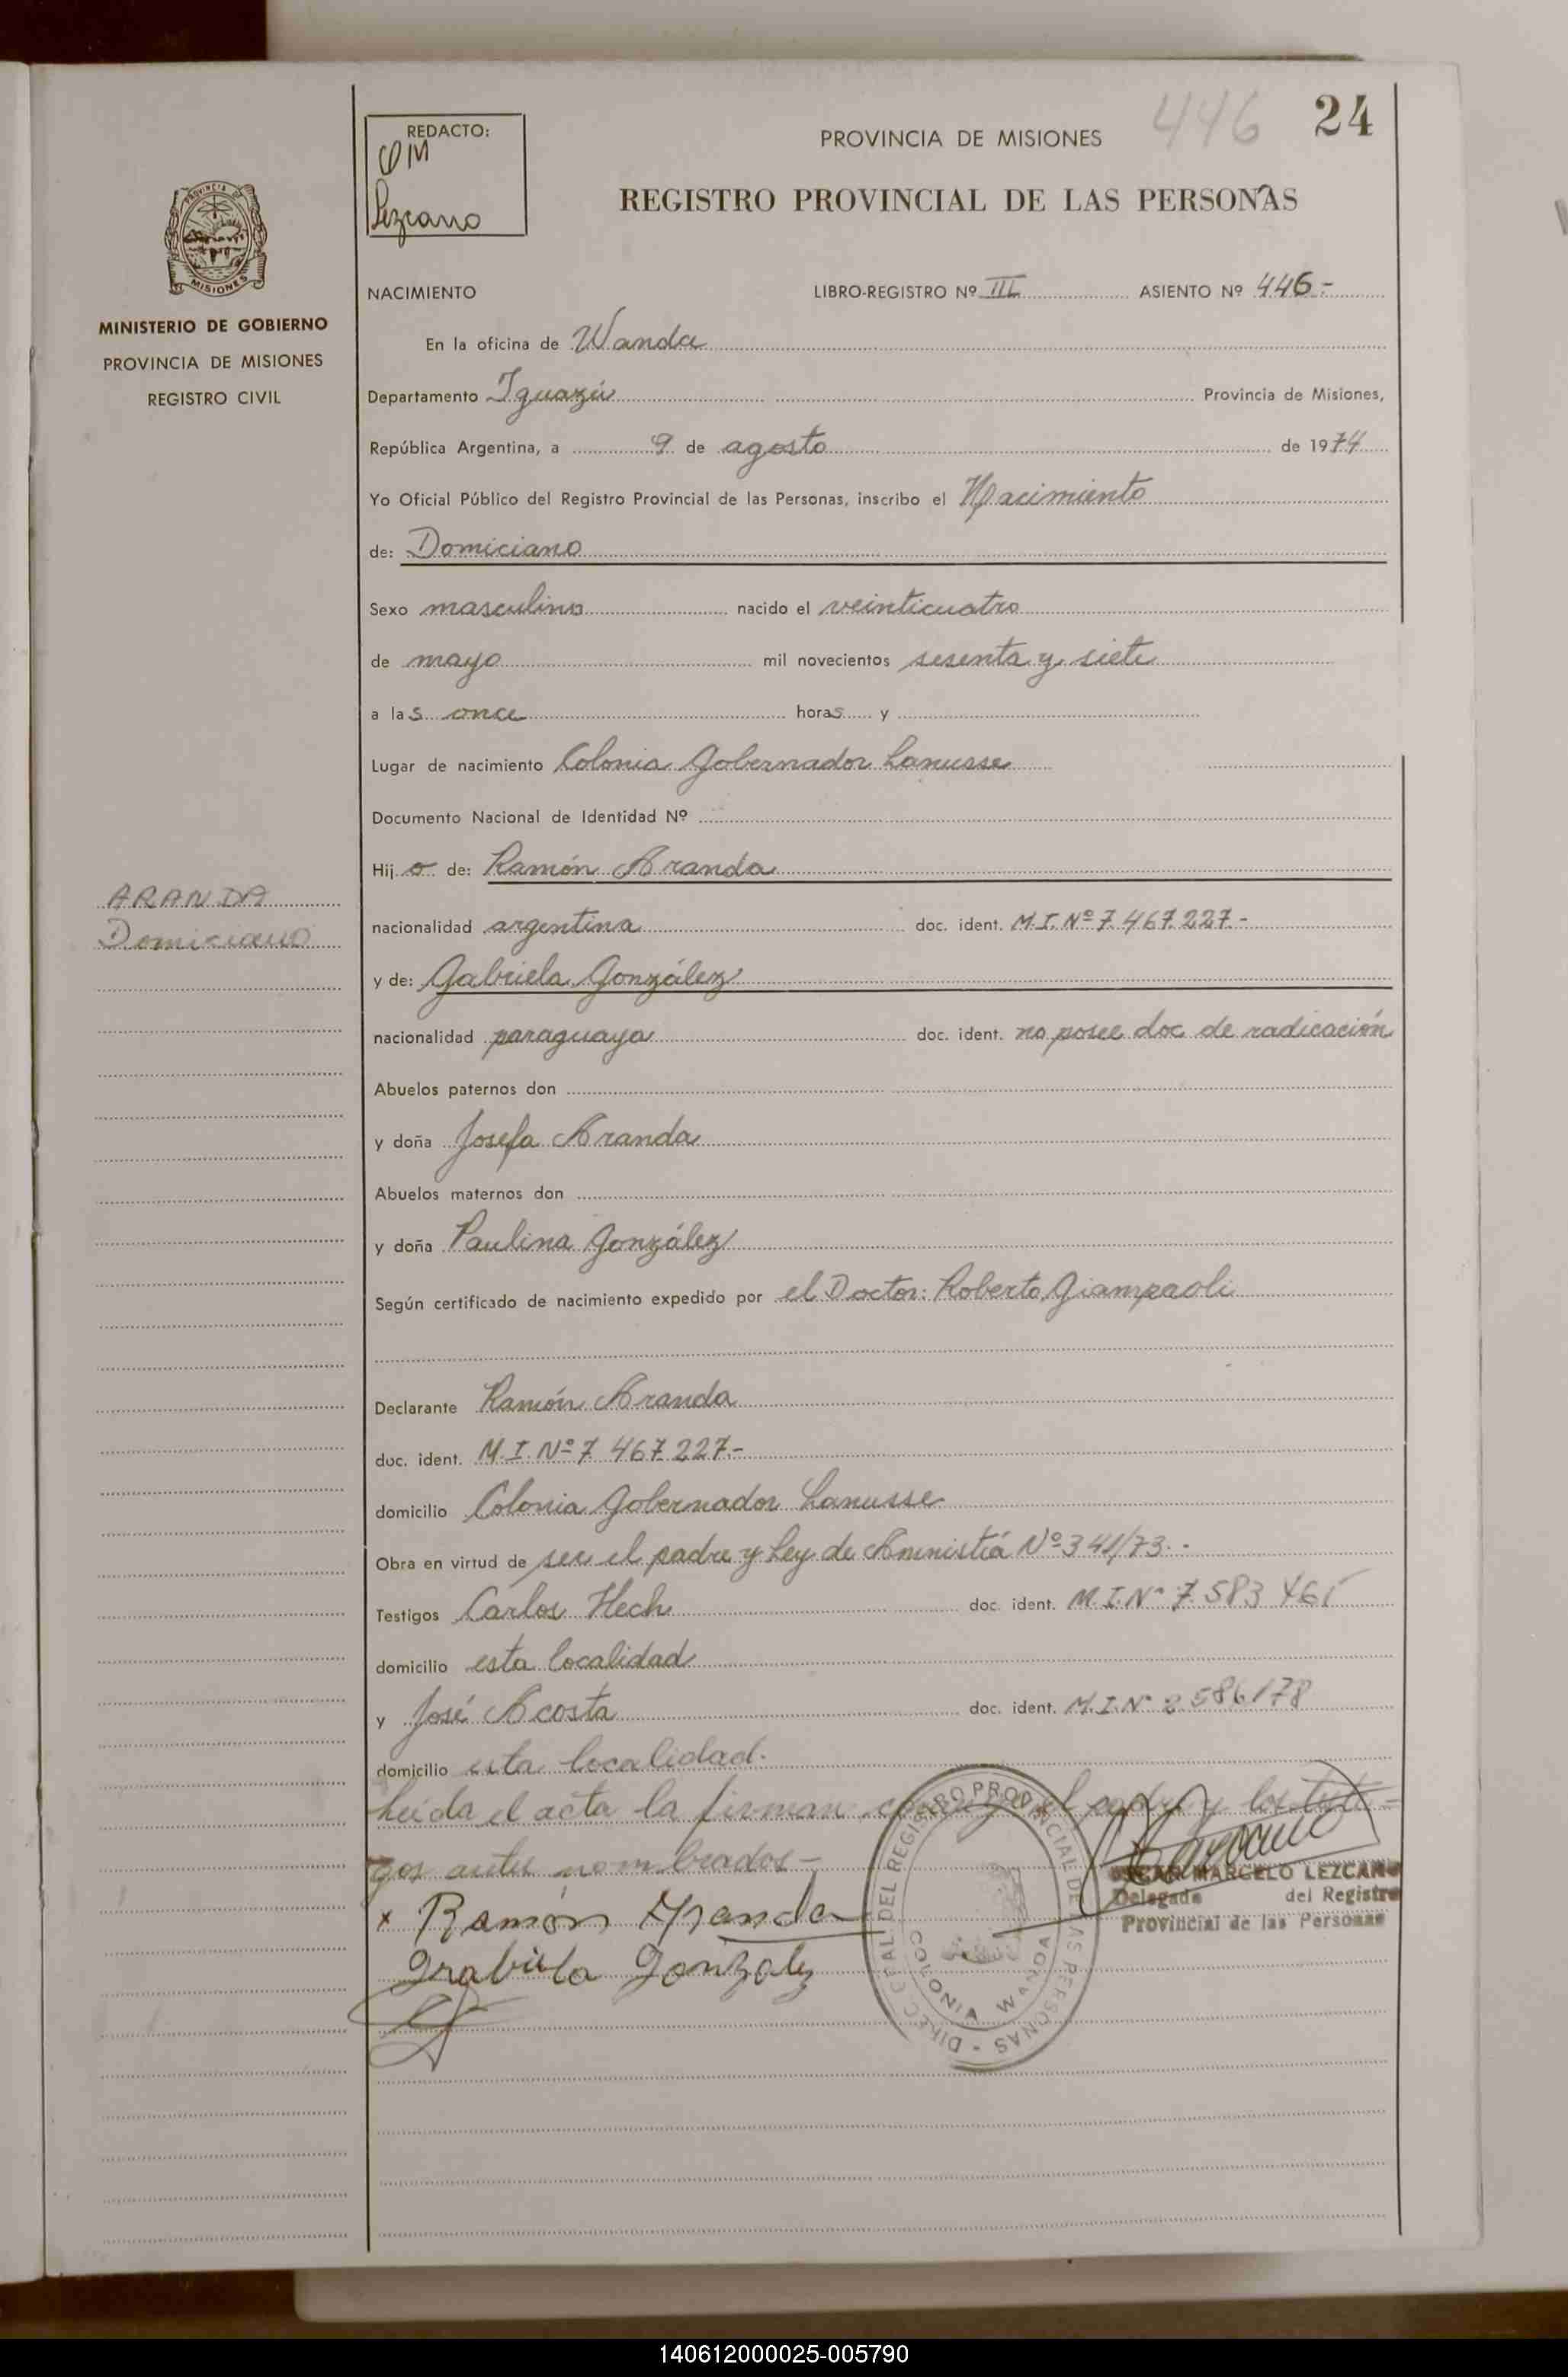 446
24
REDACTO:
OM
Lezcano
PROVINCIA DE MISIONES
REGISTRO PROVINCIAL DE LAS PERSONAS
PROVINCIA DE
MISIONES
MINISTERIO DE GOBIERNO
PROVINCIA DE MISIONES
REGISTRO CIVIL
NACIMIENTO LIBRO-REGISTRO Nº III ASIENTO Nº 446-
En la oficina de Wanda
Departamento Iguazú Provincia de Misiones,
República Argentina, a 9 de agosto de 1974
Yo Oficial Público del Registro Provincial de las Personas, inscribo el Nacimiento
de: Domiciano
Sexo masculino nacido el veinticuatro
de mayo mil novecientos sesenta y siete
a las once horas y
Lugar de nacimiento Colonia Gobernador Lanusse
Documento Nacional de Identidad Nº
Hijo de: Ramón Aranda
ARANDA
Domiciano
nacionalidad argentina doc. ident. M.I. Nº 7.467.227-
y de: Gabriela González
nacionalidad paraguaya doc. ident. no posee doc de radicación
Abuelos paternos don
y doña Josefa Aranda
Abuelos maternos don
y doña Paulina González
Según certificado de nacimiento expedido por el Doctor: Roberto Giampaoli
Declarante Ramón Aranda
doc. ident. M.I. Nº 7 467 227.-
domicilio Colonia Gobernador Lanusse
Obra en virtud de ser el padre y Ley de Amnistiá Nº 341/73.-
Testigos Carlos Hech doc. ident. M.I. Nº 7.583 461
domicilio esta localidad
y José Acosta doc. ident. M.I. Nº 2586178
domicilio esta localidad.
Leída el acta la firman conmigo el padre y los testi=
gos antes nombrados-
x Ramón Aranda
Grabiela Gonzalez
DIREC. GRAL. DEL REGISTRO PROVINCIAL DE LAS PERSONAS -
COLONIA WANDA
OSCAR MARCELO LEZCANO
Delegado del Registro
Provincial de las Personas
140612000025-005790